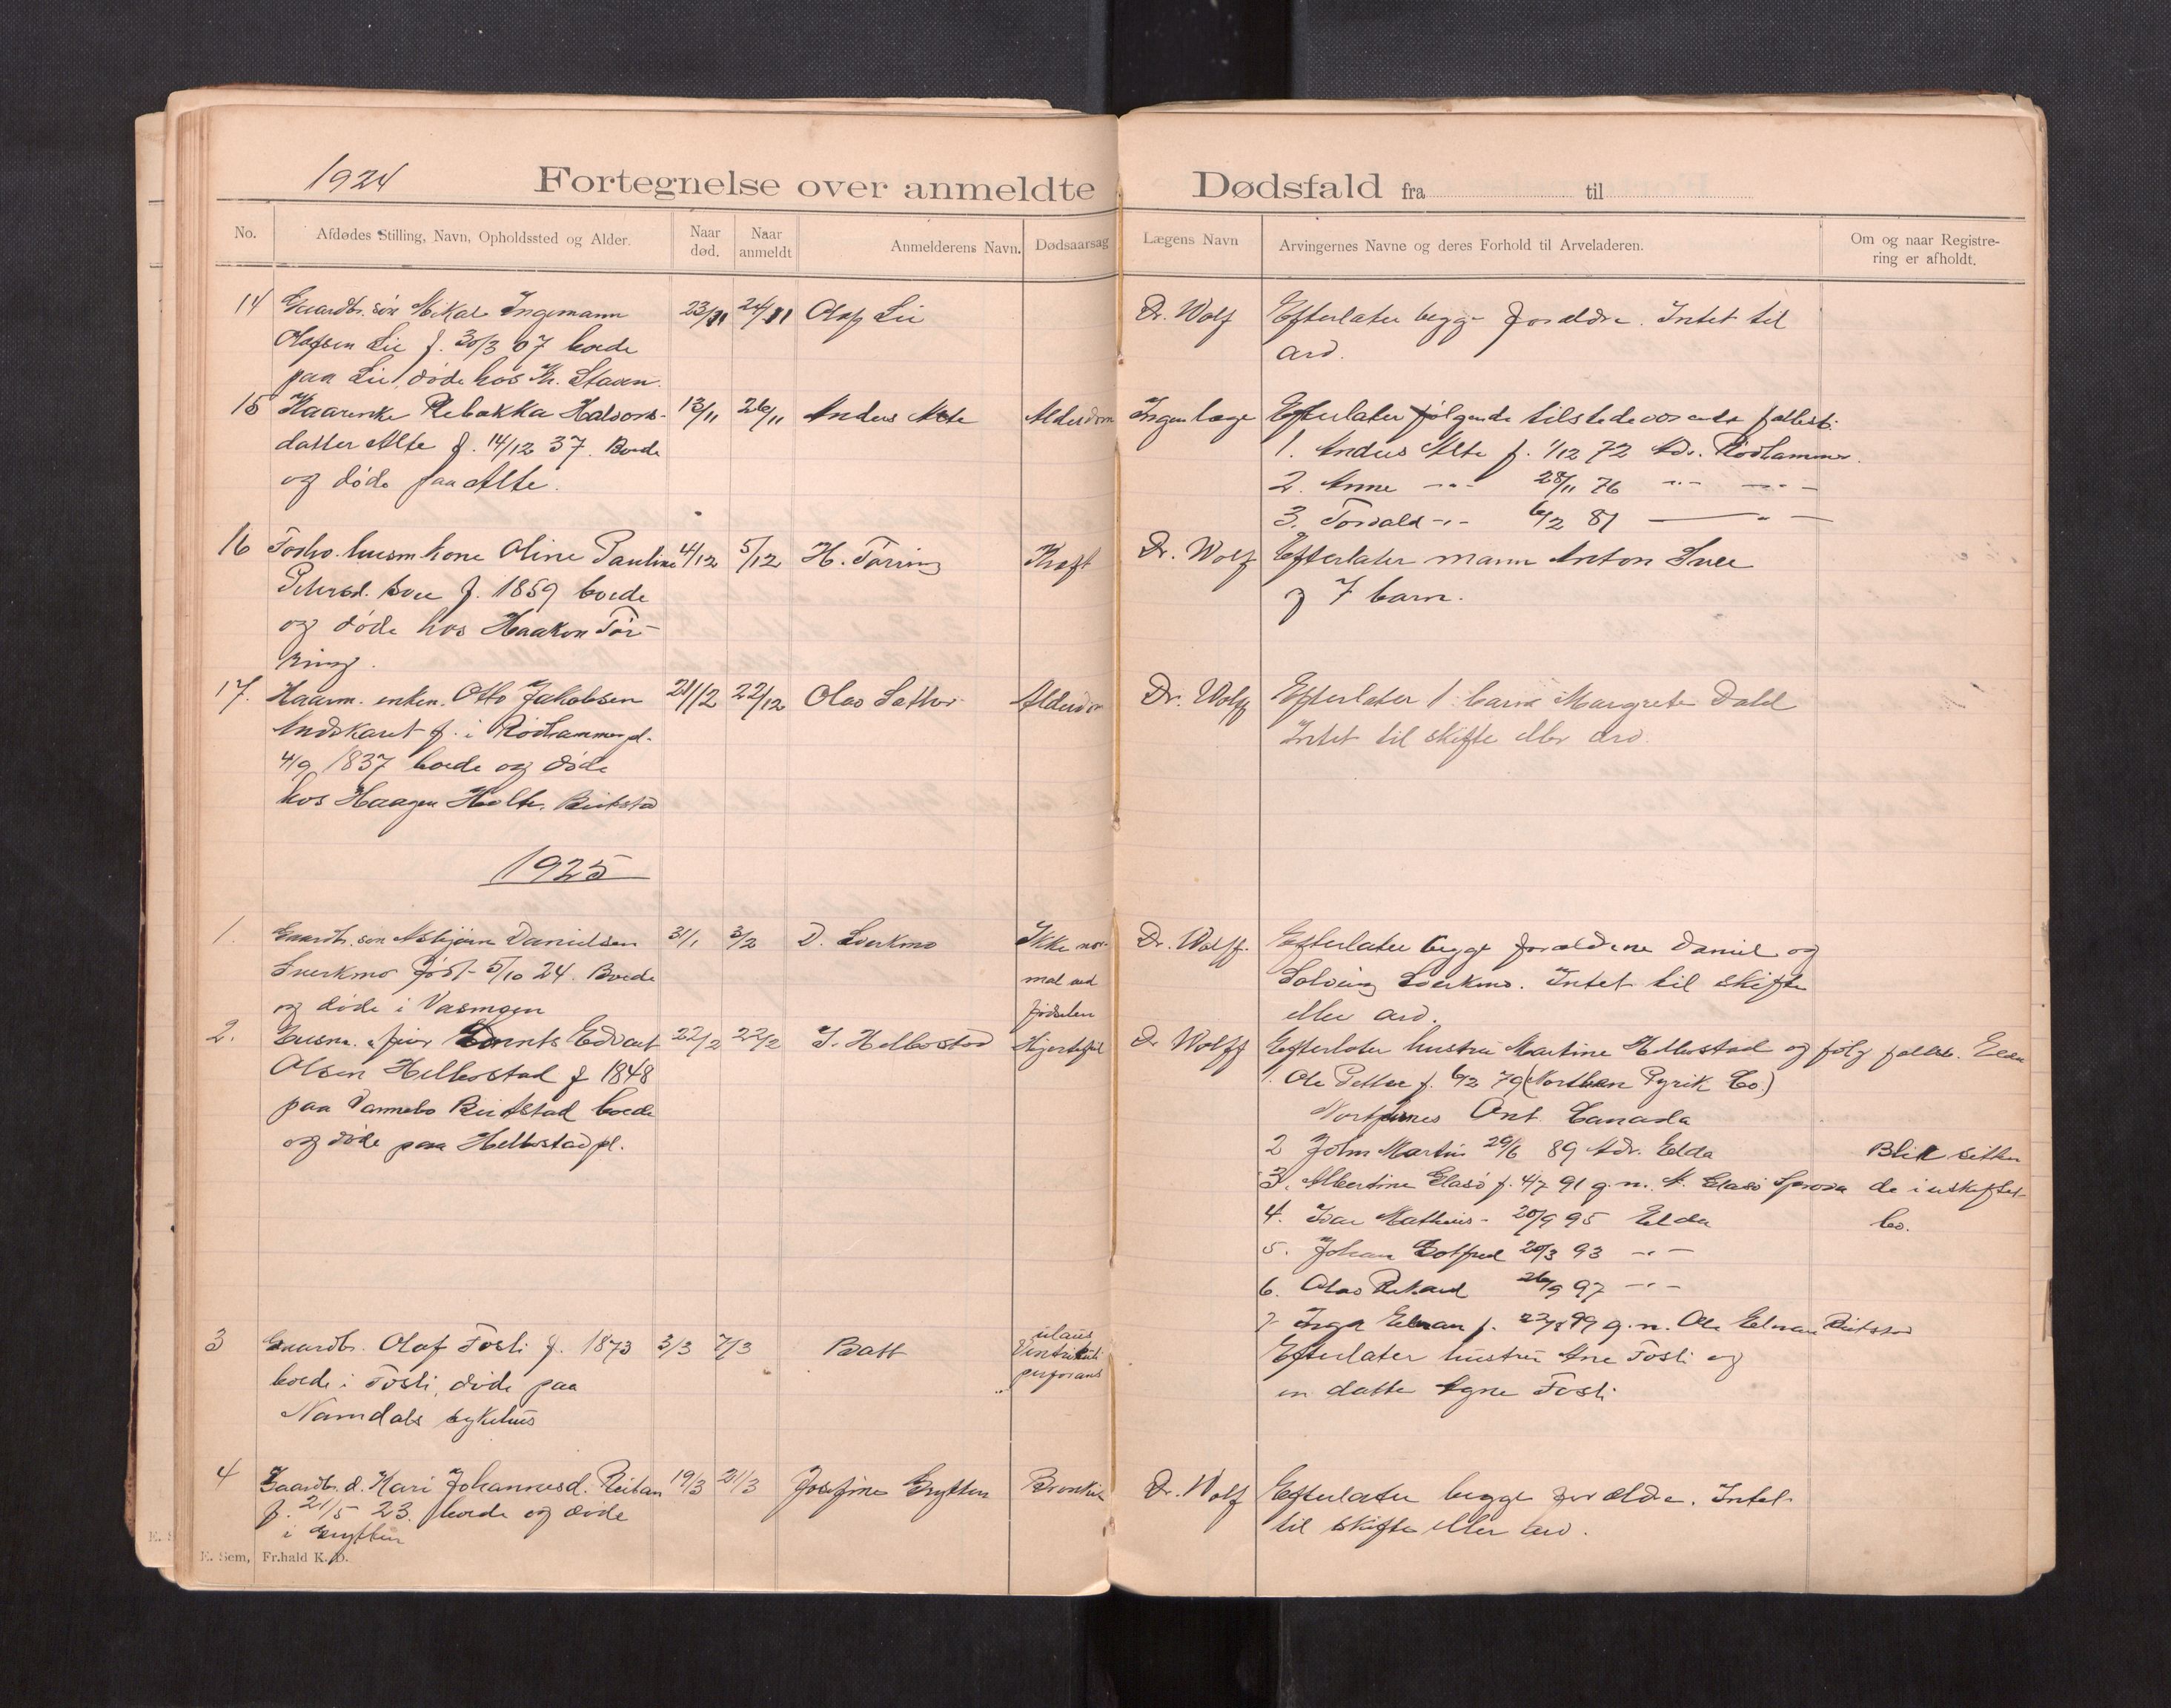 1924
Fortegnelse over anmeldte Dødsfald fra til
No. Afdødes Stilling, Navn, Opholdssted og Alder. Naar død. Naar anmeldt Anmelderens Navn. Dødsaarsag Lægens Navn Arvingernes Navne og deres Forhold til Arveladeren. Om og naar Registrering er afholdt.
14 Gaardbr. søn Mikal Ingemann 23/11 24/11 Olaf Lie Dr. Wolf Efterlater begge forældre. Intet til
Olafsen Lie f. 30/3 07 boede arv.
paa Lie, døde hos Kr. Staven.
15 Kaarenke Rebakka Halvors- 13/11 26/11 Anders Alte Alderdom Ingen læge Efterlater følgende tilstedeværende fællesb.
datter Alte f. 14/12 37. Boede 1. Anders Alte f. 1/12 72 Adr. Rödhammer.
og døde paa Alte. 2. Anne -"- 28/11 76 -"- -"-
3. Torvald -"- 6/2 81 -"-
16 Forhv. husm. kone Oline Pauline 4/12 5/12 H. Tørring Kræft Dr. Wolf Efterlater mann Anton Svee
Petersd. Svee f. 1859 boede og 7 barn.
og døde hos Haakon Tør-
ring.
17. Kaarm. enkem. Otto Jakobsen 21/12 22/12 Olav Sæther Alderdom Dr. Wolff Efterlater 1 barn Margrete Dahl
Indskaret f. i Rödhammerpl. Intet til skifte eller arv.
4/9 1837 boede og døde
hos Haagen Holte. Beitstad
1925
1. Gaardbr. søn Asbjørn Danielsen 31/1 3/2 D. Sverkmo Ikke nor- Dr. Wolff. Efterlater begge forældrene Daniel og
Sverkmo født 5/10 24. Boede mal ved Solveig Sverkmo. Intet til skifte
og døde i Vasmoen fødselen eller arv.
2. Husm. Edvart 22/2 22/2 J. Helbostad Hjertefeil Dr Wolff Efterlater hustru Martine Helbostad og følg fællesb. Elda
Olsen Helbostad f 1848 1. Ole Petter f. 6/2 79 (Northern Pyrik Co.)
paa Beitstad boede Ont. Canada
og døde paa Helbostadpl. 2 John Martin 29/6 89 Adr. Elda Blir sitten
3. Albertine Elasö f. 4/7 91 g.m. A. Elasö Sprova de i uskiftet
4. Ivar Matheus - 20/9 95 Elda bo.
5. Johan Gotfred 20/3 93 -"-
6. Olav Rikard 26/9 97 -"-
7 Inga Elnan f. 23/8 99 g.m. Ole Elnan Beitstad
3 Gaardbr. Olaf Fosli f. 1873 3/3 7/3 Batt ulcus Efterlater hustru Ane Fosli og
boede i Fosli, døde paa Ventriculi en datter Agne Fosli
Namdals sykehus perforans
4 Gaardbr. d. Kari Johannesd. Reitan 19/3 21/3 Josefine Grytten Bronkit Dr. Wolf Efterlater begge forældre. Intet
f. 21/5 23. boede og døde til skifte eller arv.
i Grytten
E. Sem, Fr.hald K. D.